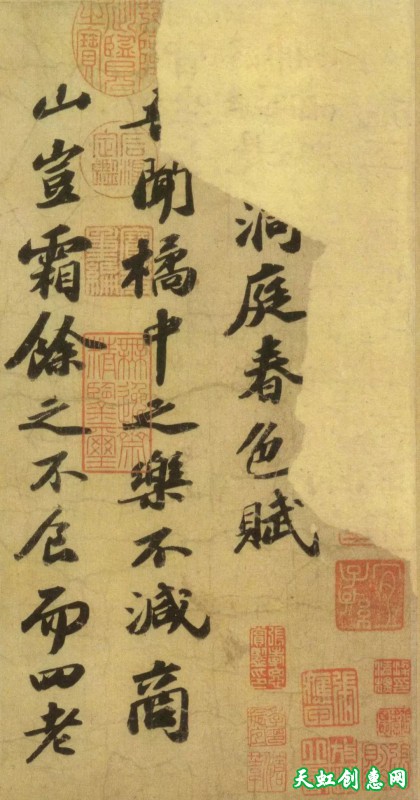 洞庭春色賦
聞橘中之樂不減商
山豈霜餘之不食而四老
天虹创惠网